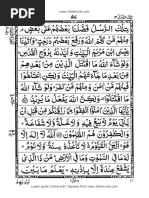 تِلْكَ الرُّسُلُ فَضَّلْنَا بَعْضَهُمْ عَلٰى بَعْضٍ
مِنْهُمْ مَّنْ كَلَّمَ اللّٰهُ وَرَفَعَ بَعْضَهُمْ دَرَجٰتٍ وَاٰتَيْنَا
عِيْسَى ابْنَ مَرْيَمَ الْبَيِّنٰتِ وَاَيَّدْنٰهُ بِرُوْحِ الْقُدُسِ
وَلَوْ شَآءَ اللّٰهُ مَا اقْتَتَلَ الَّذِيْنَ مِنْ بَعْدِهِمْ
مِّنْ بَعْدِ مَا جَآءَتْهُمُ الْبَيِّنٰتُ وَلٰكِنِ اخْتَلَفُوْا
فَمِنْهُمْ مَّنْ اٰمَنَ وَمِنْهُمْ مَّنْ كَفَرَ وَلَوْ شَآءَ اللّٰهُ مَا
اقْتَتَلُوْا وَلٰكِنَّ اللّٰهَ يَفْعَلُ مَا يُرِيْدُ يٰٓاَيُّهَا الَّذِيْنَ
اٰمَنُوْٓا اَنْفِقُوْا مِمَّا رَزَقْنٰكُمْ مِّنْ قَبْلِ اَنْ يَّاْتِيَ
يَوْمٌ لَّا بَيْعٌ فِيْهِ وَلَا خُلَّةٌ وَّلَا شَفَاعَةٌ
وَالْكٰفِرُوْنَ هُمُ الظّٰلِمُوْنَ اللّٰهُ لَآ اِلٰهَ اِلَّا هُوَ
الْحَيُّ الْقَيُّوْمُ لَا تَاْخُذُهٗ سِنَةٌ وَّلَا نَوْمٌ لَهٗ مَا
فِي السَّمٰوٰتِ وَمَا فِي الْاَرْضِ مَنْ ذَا الَّذِيْ يَشْفَعُ
عِنْدَهٗٓ اِلَّا بِاِذْنِهٖ